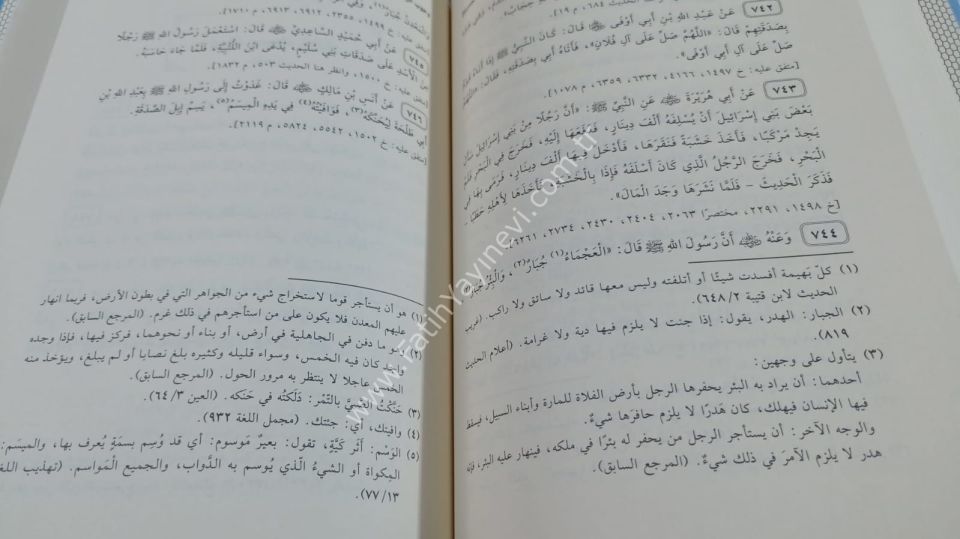 ٧٤٢ عَنْ عَبْدِ اللهِ بْنِ أَبِي أَوْفَى ﷺ قَالَ: كَانَ النَّبِيُّ ﷺ إِذَا أَتَاهُ قَوْمٌ
بِصَدَقَتِهِمْ قَالَ: «اللَّهُمَّ صَلِّ عَلَى آلِ فُلَانٍ»، فَأَتَاهُ أَبِي بِصَدَقَتِهِ، فَقَالَ: «اللَّهُمَّ
صَلِّ عَلَى آلِ أَبِي أَوْفَى».
[متفق عليه: خ ١٤٩٧، ٤١٦٦، ٦٣٣٢، ٦٣٥٩، م ١٠٧٨].
٧٤٣ عَنْ أَبِي هُرَيْرَةَ عَنِ النَّبِيِّ ﷺ: «أَنَّ رَجُلًا مِنْ بَنِي إِسْرَائِيلَ سَأَلَ
بَعْضَ بَنِي إِسْرَائِيلَ أَنْ يُسْلِفَهُ أَلْفَ دِينَارٍ، فَدَفَعَهَا إِلَيْهِ، فَخَرَجَ فِي الْبَحْرِ فَلَمْ
يَجِدْ مَرْكَبًا، فَأَخَذَ خَشَبَةً فَنَقَرَهَا، فَأَدْخَلَ فِيهَا أَلْفَ دِينَارٍ، فَرَمَى بِهَا فِي
الْبَحْرِ، فَخَرَجَ الرَّجُلُ الَّذِي كَانَ أَسْلَفَهُ فَإِذَا بِالْخَشَبَةِ، فَأَخَذَهَا لِأَهْلِهِ حَطَبًا -
فَذَكَرَ الْحَدِيثَ - فَلَمَّا نَشَرَهَا وَجَدَ الْمَالَ».
[خ ١٤٩٨، ٢٢٩١، مختصرًا ٢٠٦٣، ٢٤٠٤، ٢٤٣٠، ٢٧٣٤، ٦٢٦١].
٧٤٤ وَعَنْهُ أَنَّ رَسُولَ اللهِ ﷺ قَالَ: «الْعَجْمَاءُ(١) جُبَارٌ(٢)، وَالْبِئْرُ جُبَارٌ(٣)
(١) كلّ بَهيمة أفسدت شيئًا أو أتلفته وليس معها قائد ولا سائق ولا راكب. (غريب
الحديث لابن قتيبة ٢/ ٦٤٨).
(٢) الجبار: الهدر، يقول: إذا جنت لا يلزم فيها دية ولا غرامة. (أعلام الحديث
٨١٩).
(٣) يتأول على وجهين:
أحدهما: أن يراد به البئر يحفرها الرجل بأرض الفلاة للمارة وأبناء السبيل، فيسقط
فيها الإنسان فيهلك، كان هَدرًا لا يلزم حافرَها شيءٌ.
والوجه الآخر: أن يستأجر الرجل من يحفر له بئرًا في ملكه، فينهار عليه البئر، فإنه
هدر لا يلزم الآمرَ في ذلك شيءٌ. (المرجع السابق).
[متفق عليه: خ ١٤٩٩، ٢٣٥٥، ٦٩١٢، ٦٩١٣، م ١٧١٠].
٧٤٥ عَنْ أَبِي حُمَيْدٍ السَّاعِدِيِّ قَالَ: اسْتَعْمَلَ رَسُولُ اللهِ ﷺ رَجُلًا
مِنَ الْأَسْدِ عَلَى صَدَقَاتِ بَنِي سُلَيْمٍ، يُدْعَى ابْنَ اللُّتْبِيَّةِ، فَلَمَّا جَاءَ حَاسَبَهُ.
[متفق عليه: خ ١٥٠٠، وانظر هنا الحديث ٥٠٣، م ١٨٣٢].
٧٤٦ عَنْ أَنَسِ بْنِ مَالِكٍ قَالَ: غَدَوْتُ إِلَى رَسُولِ اللهِ ﷺ بِعَبْدِ اللهِ بْنِ
أَبِي طَلْحَةَ لِيُحَنِّكَهُ(٣)، فَوَافَيْتُهُ(٤) فِي يَدِهِ الْمِيسَمُ(٥)، يَسِمُ إِبِلَ الصَّدَقَةِ.
[متفق عليه: خ ١٥٠٢، ٥٥٤٢، ٥٨٢٤، م ٢١١٩].
(١) هو أن يستأجر قوما لاستخراج شيء من الجواهر التي في بطون الأرض، فربما انهار
عليهم المعدن فلا يكون على من استأجرهم في ذلك غرم. (المرجع السابق).
(٢) وهو ما دفن في الجاهلية في أرض، أو بناء أو نحوهما، فركز فيها، فإذا وجده
واجد كان فيه الخمس، وسواء قليله وكثيره بلغ نصابا أو لم يبلغ، ويؤخذ منه
الخمس عاجلا لا ينتظر به مرور الحول. (المرجع السابق).
(٣) حَنَّكْتُ الصَّبِيَّ بِالتَّمْرِ: دَلَكْتُه في حَنَكه. (العين ٣/ ٦٤).
(٤) وافيتك، أي: جئتك. (مجمل اللغة ٩٣٢).
(٥) الوَسْم: أثَر كَيَّةٍ، تقول: بعيرٌ موسوم: أي قد وُسِم بسمَةٍ يُعرف بها، والميسَم:
المِكواة أو الشيءُ الّذي يُوسم به الدَّواب، والجميع المَواسم. (تهذيب اللغة
١٣/ ٧٧).
www.FatihYayinevi.com.tr